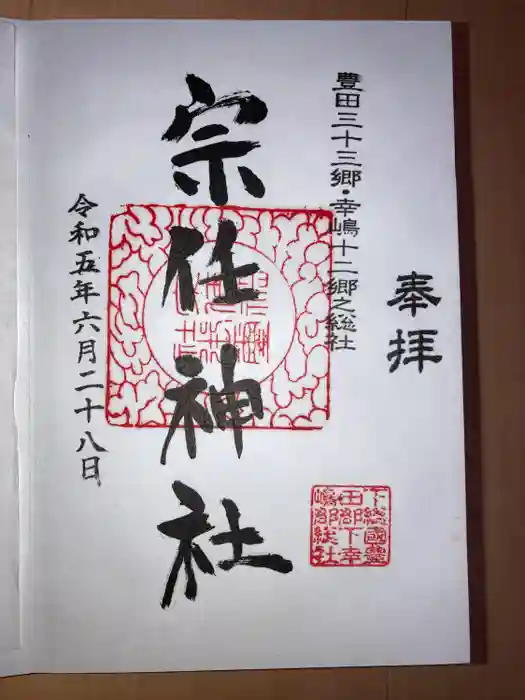 奉拝
豊田三十三郷・幸嶋十二郷之総社
宗任神社
令和五年六月二十八日
下総國豊
田郡下幸
嶋郡総社